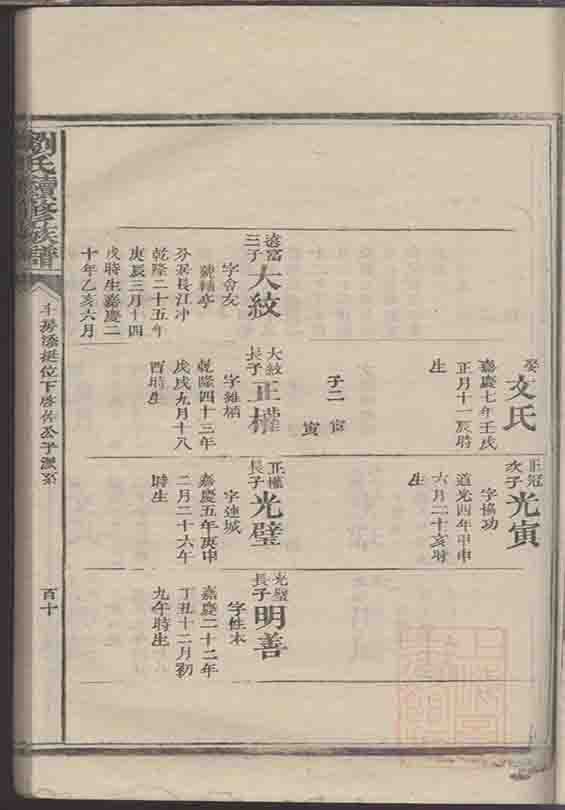 娶
文氏
嘉慶七年壬戌
正月十一辰時
生
子二
寅
寅
正冠
次子
光寅
字協功
道光四年甲申
六月二十亥時
生
三子
大紋
字會友
號輔亭
分居長江冲
乾隆二十五年
庚辰三月十四
戌時生嘉慶二
十年乙亥六月
大紋
長子
正權
字維柄
乾隆四十三年
戊戌九月十八
酉時生
正權
長子
光璧
字連城
嘉慶五年庚申
二月二十六午
時生
光璧
長子
明善
字性本
嘉慶二十二年
丁丑十二月初
九午時生
劉氏續修族譜
百十